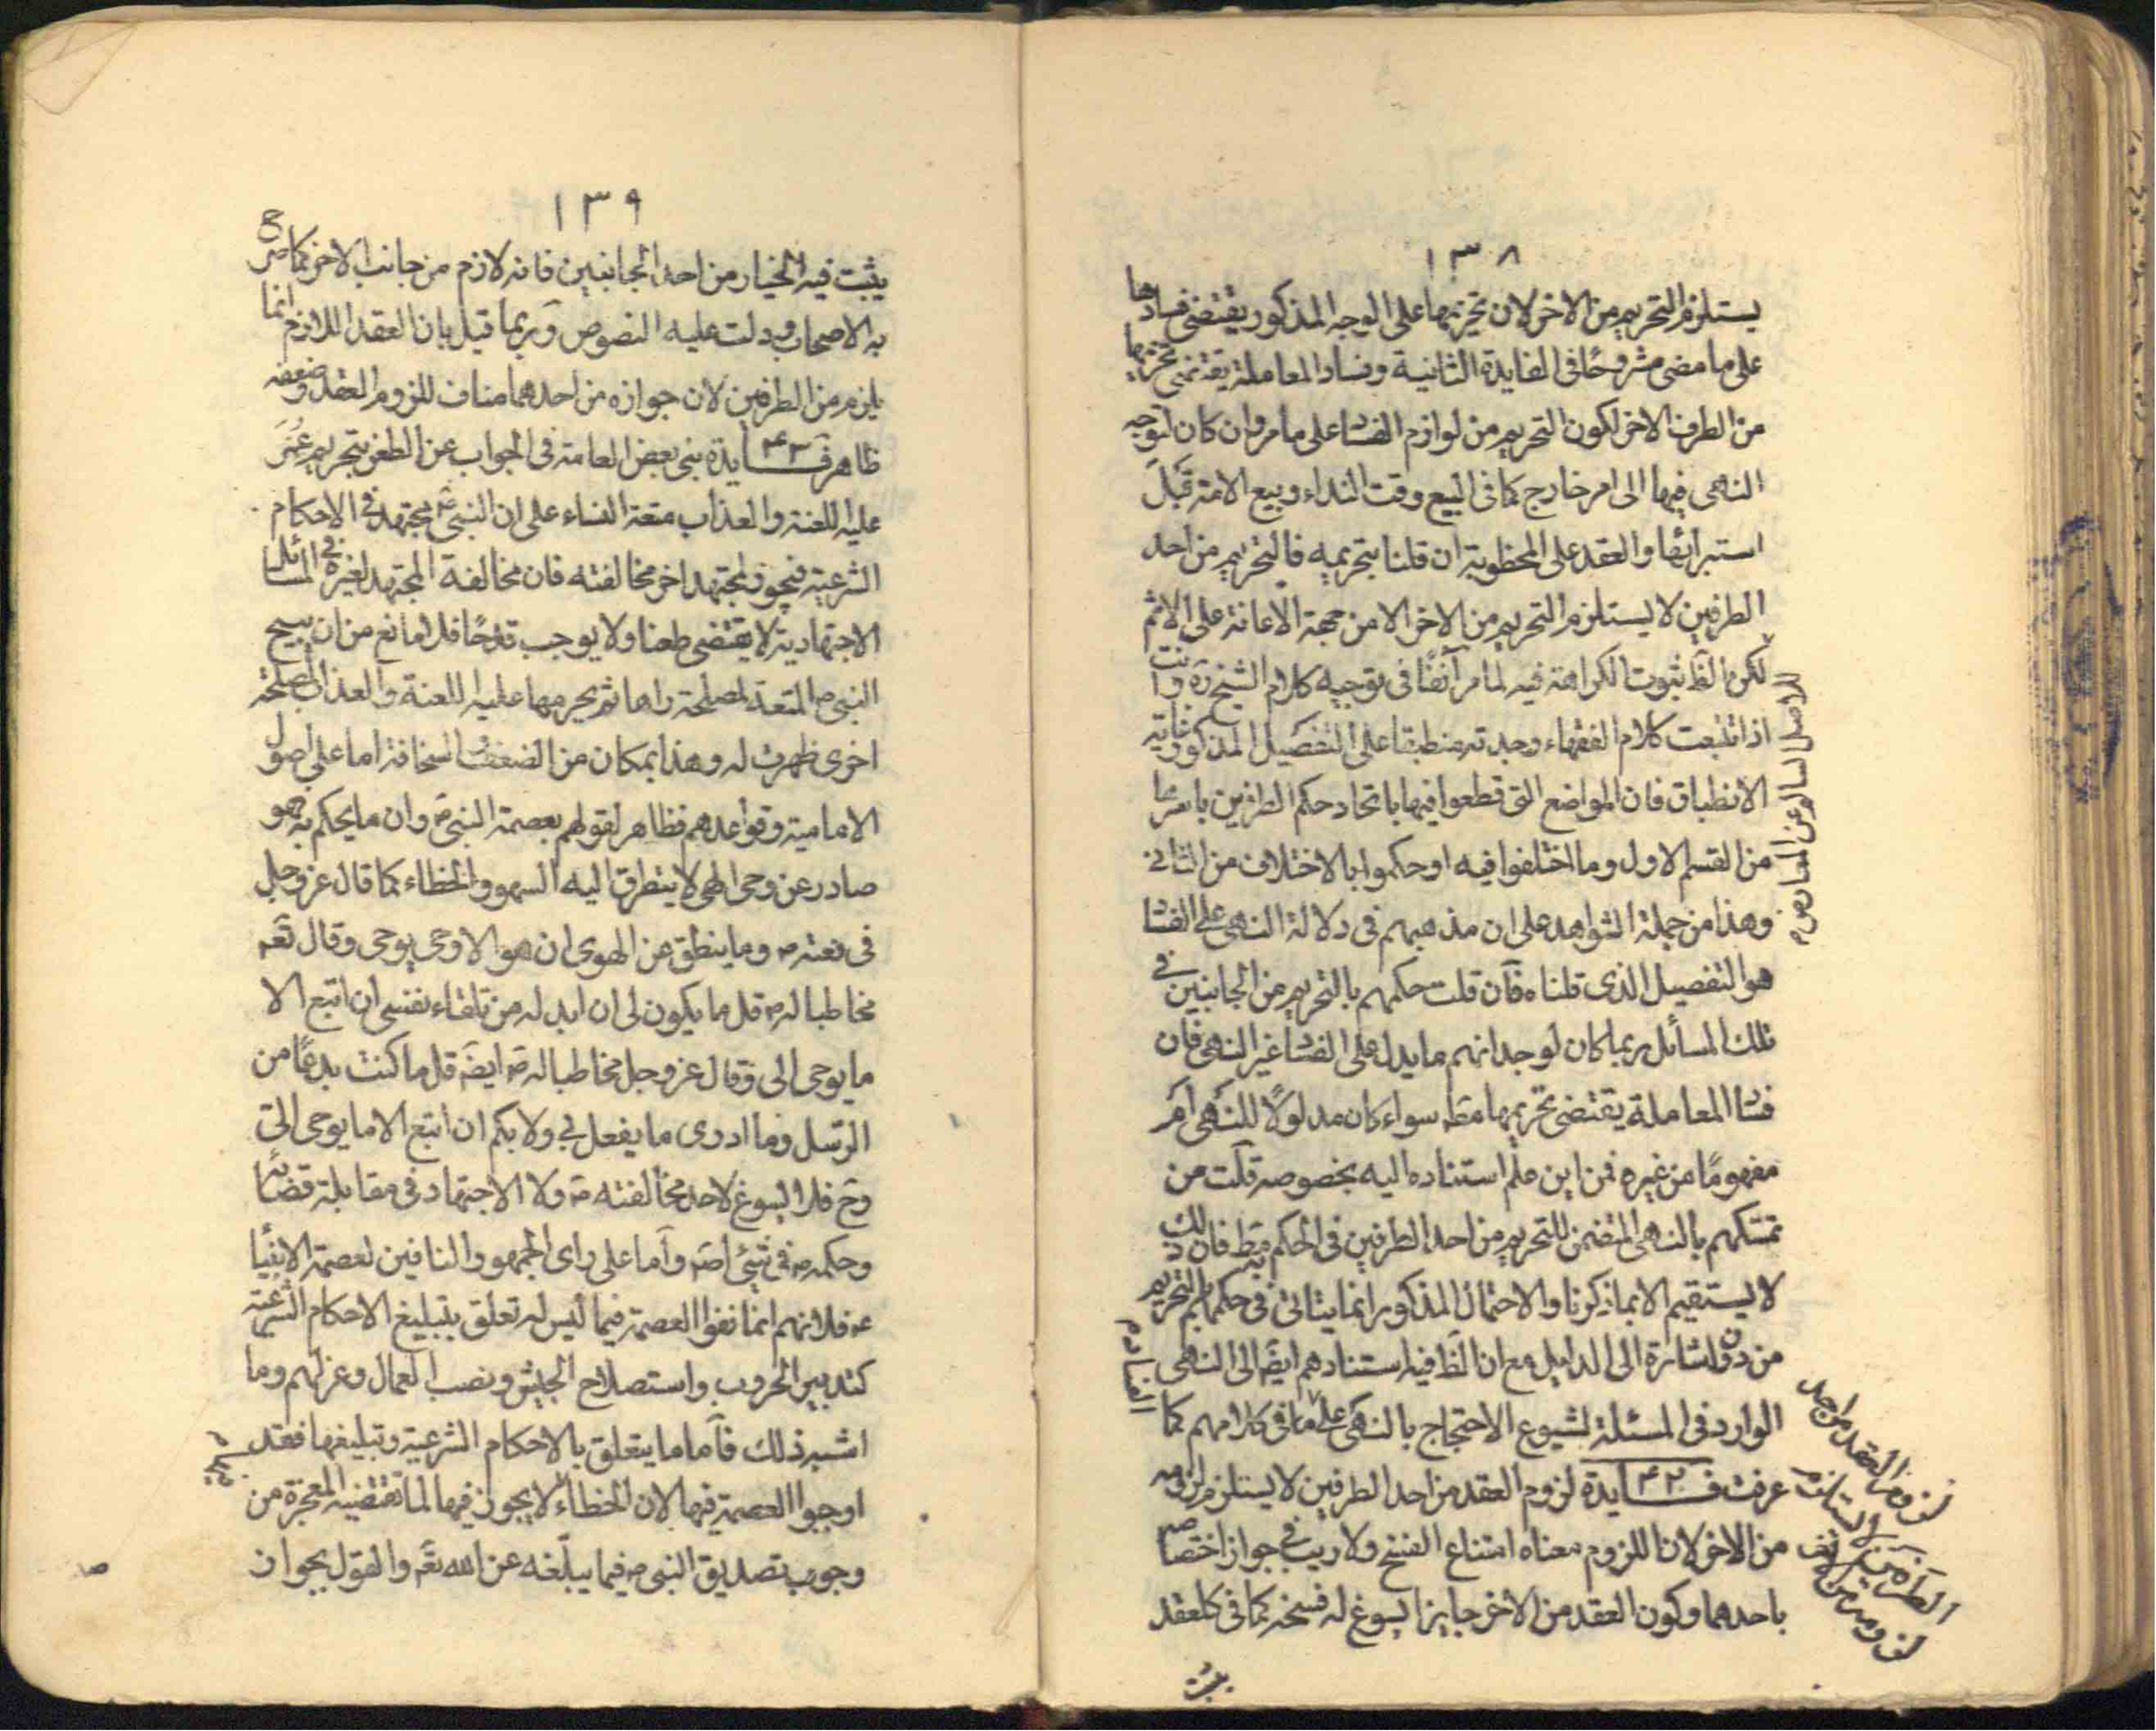 ١٣٨
يستلزم التحريم من الاخر لان تحريمها على الوجه المذكور يقتضى فسادها
على ما مضى مشروحًا فى الفايدة الثانية وفساد المعاملة يقتضى تحريمها
من الطرف الاخر لكون التحريم من لوازم الفساد على ما مر وان كان لتوجه
النهى فيها الى امر خارج كما فى البيع وقت النداء وبيع الامة قبل
استبرائها والعقد على المخطوبة ان قلنا بتحريمه فالتحريم من احد
الطرفين لا يستلزم التحريم من الاخر الا من جهة الاعانة على الاثم
لكن الظ ثبوت الكراهة فيه لما مر آنفًا فى توجيه كلام الشيخ ره وانت
اذا تتبعت كلام الفقهاء وجدته منطبقا على التفصيل المذكور غاية
الانطباق فان المواضع التى قطعوا فيها باتحاد حكم الطرفين باسرها
من القسم الاول وما اختلفوا فيه او حكموا بالاختلاف من الثانى
وهذا من جملة الشواهد على ان مذهبهم فى دلالة النهى على الفساد
هو التفصيل الذى قلناه فان قلت حكمهم بالتحريم من الجانبين فى
تلك المسائل ربما كان لوجدانهم ما يدل على الفساد غير النهى فان
فساد المعاملة يقتضى تحريمها مط سواء كان مدلولًا للنهى ام
مفهومًا من غيره فمن اين علم استناده اليه بخصوصه قلت من
تمسكهم بالنهى المتضمن للتحريم من احد الطرفين فى الحكم به مط فان ذلك
لا يستقيم الا بما ذكرنا والاحتمال المذكور انما يتاتى فى حكمهم بالتحريم
من دون اشارة الى الدليل مع ان الظ فيه استنادهم ايضَ الى النهى
الوارد فى المسئلة لشيوع الاحتجاج بالنهى على ما فى كلامهم كما
عرفت فــايدة ٤٢ لزوم العقد من احد الطرفين لا يستلزم لزومه
من الاخر لان اللزوم معناه امتناع الفسخ ولا ريب فى جواز اختصاصه
باحدهما وكون العقد من الاخر جايزا يسوغ له فسخه كما فى كلعقد
للاصل السالم عن المعارض م
الفساد م
لزوم العقد من احد
الطرفين لا يستلزم
لزومه من
١٣٩
يثبت فيه الخيار من احد الجانبين فانه لازم من جانب الاخر كما صرح
به الاصحاب ودلت عليه النصوص وربما قيل بان العقد اللازم انما
يلزم من الطرفين لان جوازه من احدهما مناف للزوم العقد وضعفه
ظاهر فــايدة ٤٣ بنى بعض العامة فى الجواب عن الطعن بتحريم عُمَر
عليه اللعنة والعذاب متعة النساء على ان النبى ص مجتهد فى الاحكام
الشرعية فيجوز لمجتهد اخر مخالفته فان مخالفة المجتهد لغيره فى المسائل
الاجتهادية لا يقتضى طعنا ولا يوجب قدحًا فلا مانع من ان يبيح
النبى ص المتعة لمصلحة راها ثم يحرمها عليه اللعنة والعذاب لمصلحة
اخرى ظهرت له وهذا بمكان من الضعف والسخافة اما على اصول
الامامية وقواعدهم فظاهر لقولهم بعصمة النبى ص وان ما يحكم به هو
صادر عن وحى الهى لا يتطرق اليه السهو والخطاء كما قال عز وجل
فى نعته ص وما ينطق عن الهوى ان هو الا وحى يوحى وقال تعَ
مخاطبا له ص قل ما يكون لى ان ابدله من تلقاء نفسى ان اتبع الا
ما يوحى الى وقال عز وجل مخاطبا له ص ايضَ قل ما كنت بدعًا من
الرسل وما ادرى ما يفعل بى ولا بكم ان اتبع الا ما يوحى الى
وح فلا يسوغ لاحد مخالفته ص ولا الاجتهاد فى مقابلة قضائه
وحكمه ص فى شيئ اصَ واما على راى الجمهور النافين لعصمة الانبيا
ع فلانهم انما نفوا العصمة فيما ليس له تعلق بتبليغ الاحكام الشرعية
كتدبير الحروب واستصلاح الجيش ونصب العمال وعزلهم وما
اشبه ذلك فاما ما يتعلق بالاحكام الشرعية وتبليغها فقد
اوجبوا العصمة فيها لان الخطاء لا يجوز فيها لما تقتضيه المعجزة من
وجوب تصديق النبى ص فيما يبلّغه عن الله تعَ والقول بجواز